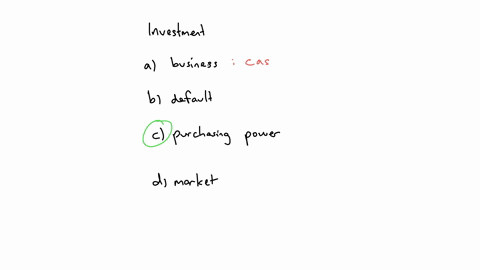 Investment
a) business : cas
b) default
c) purchasing power
d) market